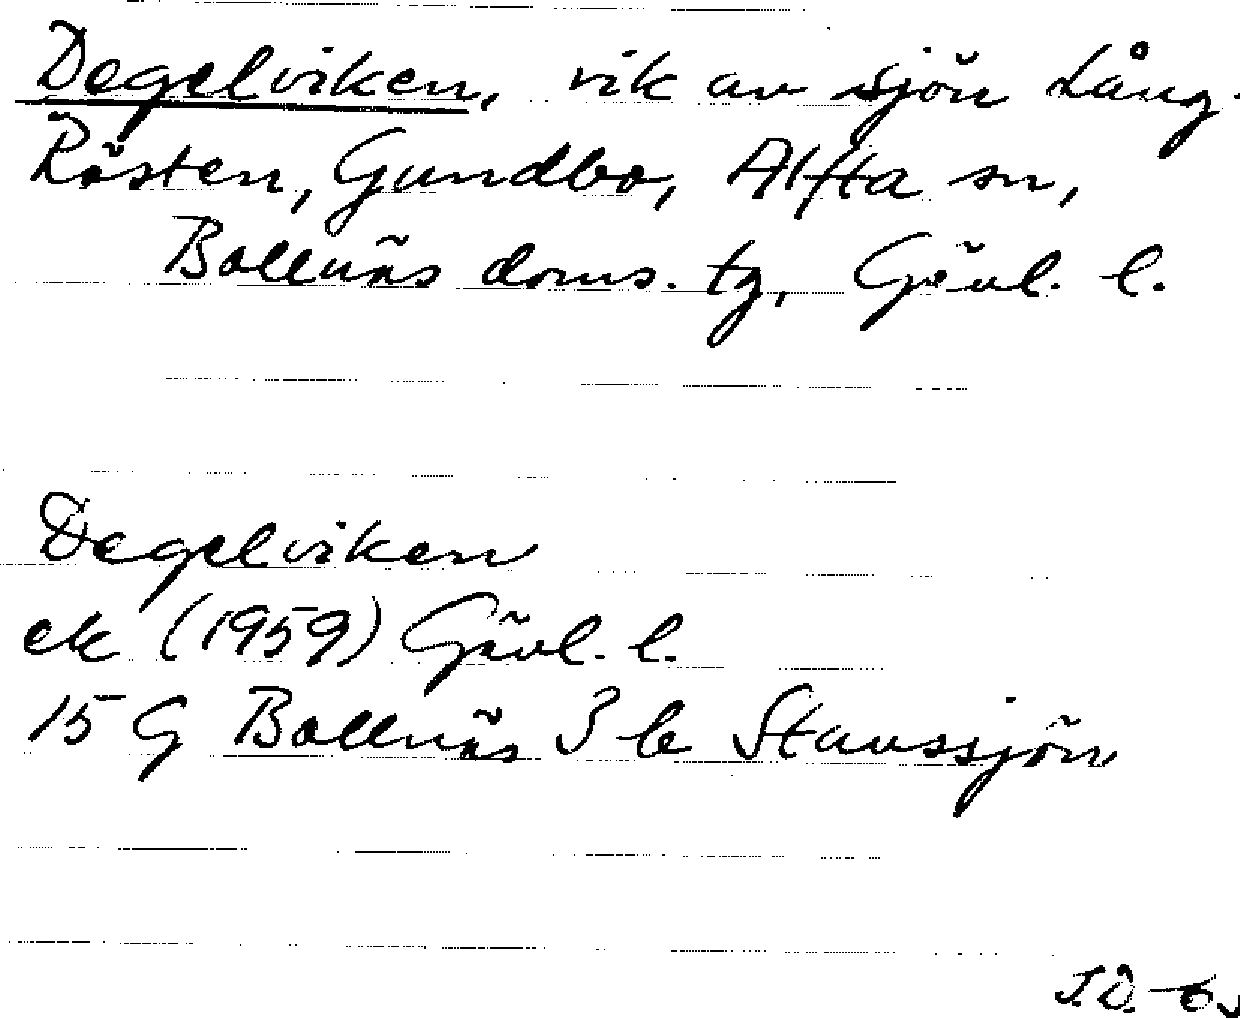 Degelviken, vik av sjön Lång-
Rösten, Gundbo, Alfta sn,
Bollnäs doms. tg, Gävl. l.
Degelviken
ek (1959) Gävl. l.
15 G Bollnäs 3 b Stavssjön
J.Ö.